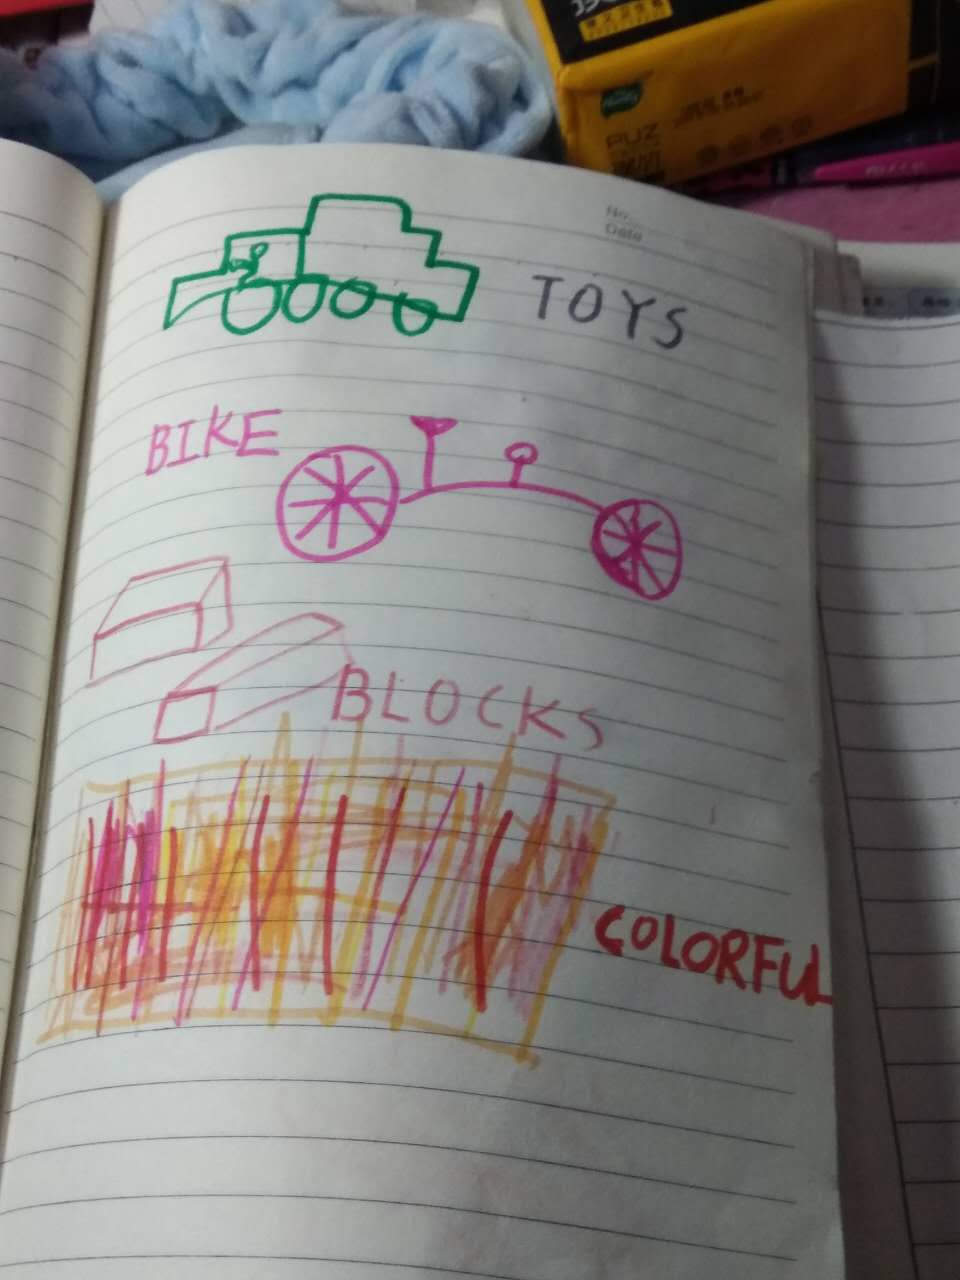 No.
Date
TOYS
BIKE
BLOCKS
COLORFUL
PUZ